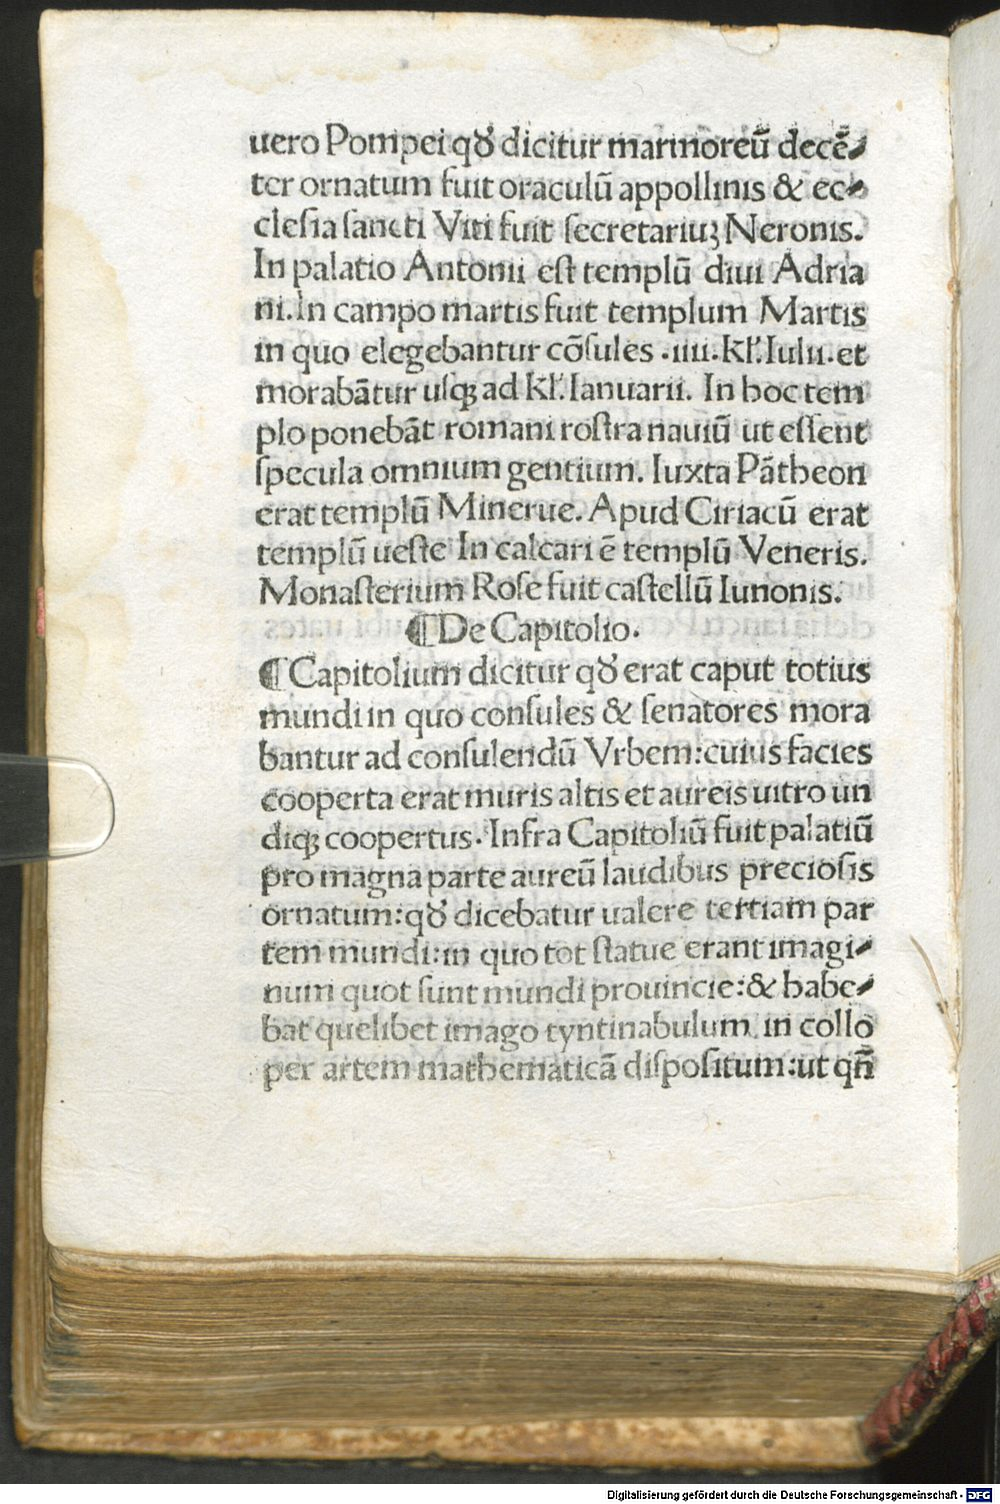 uero Pompei qđ dicitur marmoreū decē⸗
ter ornatum fuit oraculū appollinis & ec⸗
clesia sancti Viti fuit secretariuꝫ Neronis.
In palatio Antonii est templū diui Adria
ni. In campo martis fuit templum Martis
in quo elegebantur cōsules .iiii. kl'. Iulii. et
morabātur usqꝫ ad kl'. Ianuarii. In hoc tem
plo ponebāt romani rostra nauiū ut essent
specula omnium gentium. Iuxta Pātheon
erat templū Minerue. Apud Ciriacū erat
templū ueste In calcari ē templū Veneris.
Monasterium Rose fuit castellū Iunonis.
¶ De Capitolio.
¶ Capitolium dicitur qđ erat caput totius
mundi in quo consules & senatores mora
bantur ad consulendū Vrbem: cuius facies
cooperta erat muris altis et aureis uitro un
diqꝫ coopertus. Infra Capitoliū fuit palatiū
pro magna parte aureū laudibus preciosis
ornatum: qđ dicebatur ualere tertiam par
tem mundi: in quo tot statue erant imagi⸗
num quot sunt mundi prouincie: & habe⸗
bat quelibet imago tyntinabulum in collo
per artem mathematicā dispositum: ut qn̄
Digitalisierung gefördert durch die Deutsche Forschungsgemeinschaft - DFG